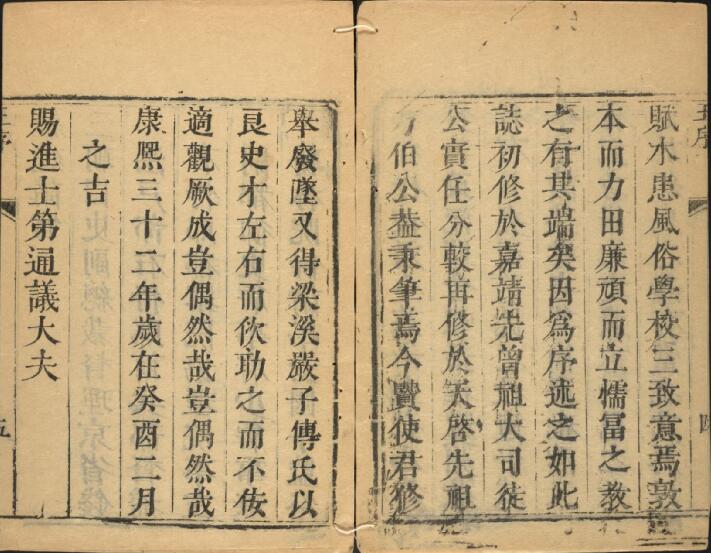 賦水患風俗學校三致意焉敦
本而力田廉頑而立懦冨之教
之有其端矣因爲序述之如此
誌初修於嘉靖先曾祖大司徒
公實任分較再修於天啓先祖
伯公益秉筆焉今賢使君修
舉廢墜又得梁溪嚴子傳氏以
良史才左右而佽助之而不佞
適觀厥成豈偶然哉豈偶然哉
康熙三十二年歲在癸酉二月
之吉
賜進士第通議大夫
王序
五